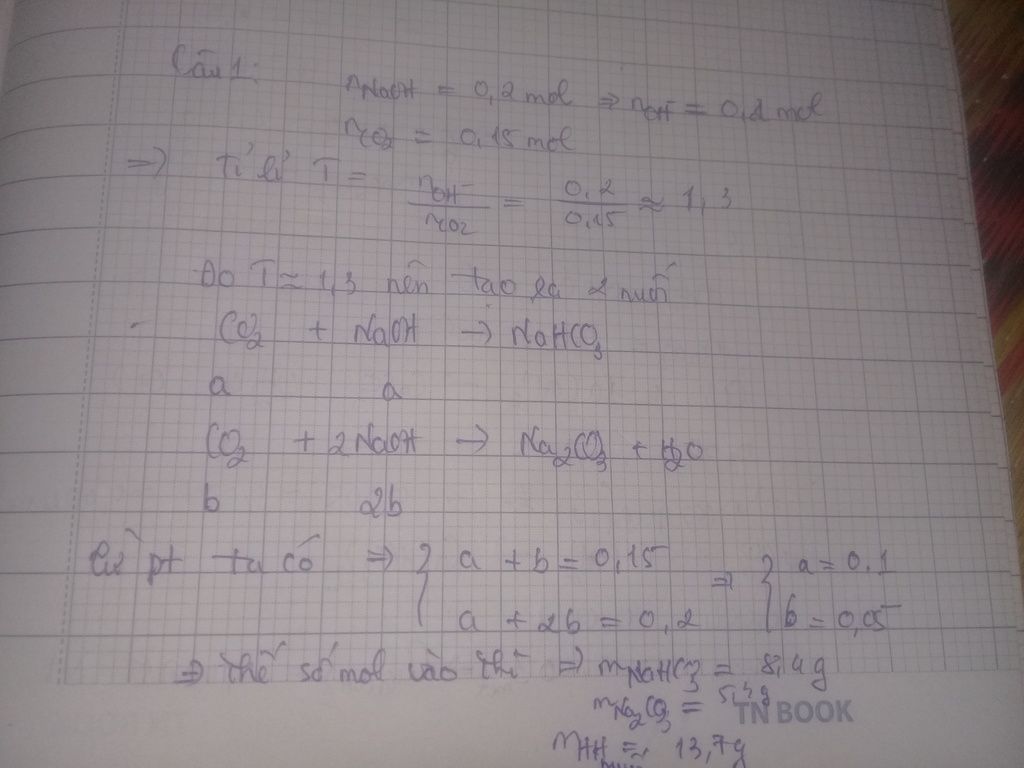 Câu 1:
nNaOH = 0,2 mol ⇒ nOH⁻ = 0,2 mol
nCO₂ = 0,15 mol
⇒) Tỉ lệ T = nOH⁻ / nCO₂ = 0,2 / 0,15 ≈ 1,3
Do T ≈ 1,3 nên tạo ra 2 muối
CO₂ + NaOH → NaHCO₃
a a
CO₂ + 2NaOH → Na₂CO₃ + H₂O
b 2b
Từ pt ta có ⇒ { a + b = 0,15 ⇒ { a = 0,1
a + 2b = 0,2 b = 0,05
⇒ thế số mol vào thì ⇒ mNaHCO₃ = 8,4g
mNa₂CO₃ = 5,3g
TN BOOK
mHH muối = 13,7g